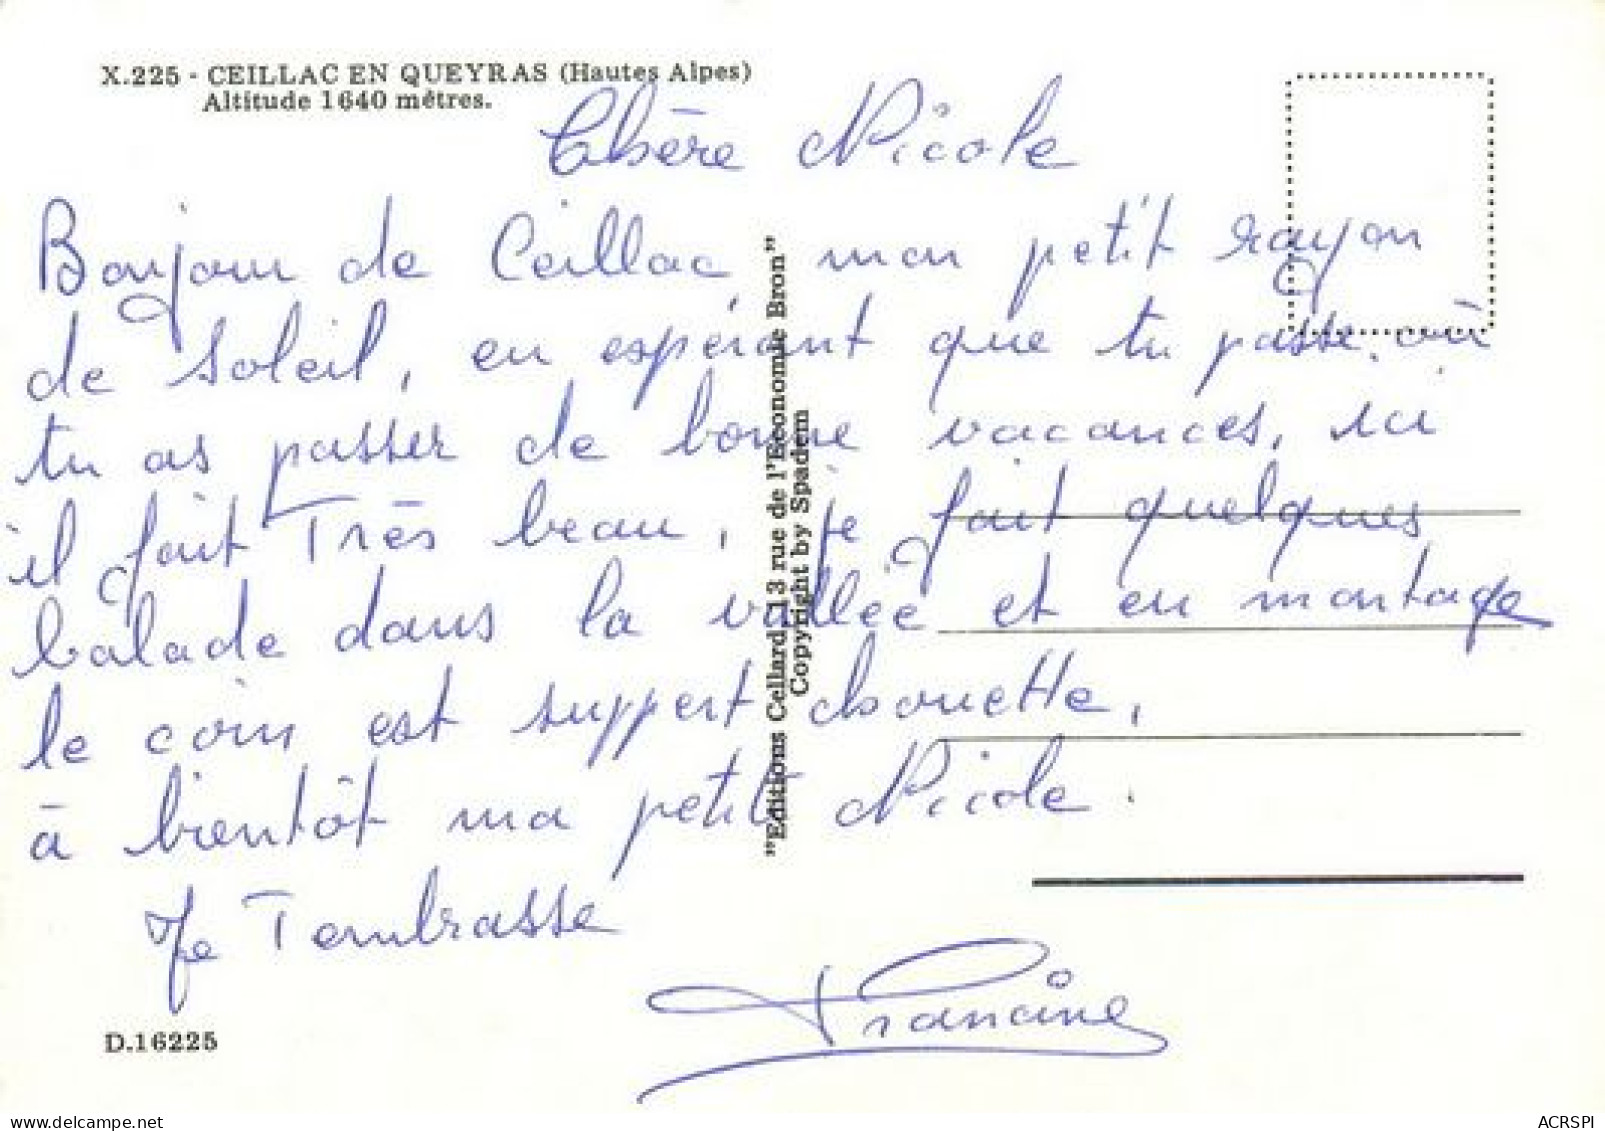 X.225 - CEILLAC EN QUEYRAS (Hautes Alpes)
Altitude 1640 mètres.
Chère Nicole
Bonjour de Ceillac, mon petit rayon
de soleil, en espérant que tu passe, où
tu as passer de bonne vacances, ici
il fait Très beau, je fait quelques
balade dans la vallée et en montage
le coin est suppert chouette,
à bientôt ma petit Nicole.
Je T'embrasse
Francine
"Editions Cellard 13 rue de l'Economie Bron"
Copyright by Spadem
D.16225
delcampe.net
ACRSPI